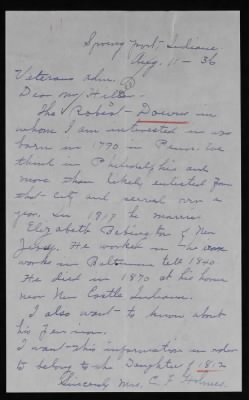 Springport, Indiana
Aug. 11 - 36
Veterans Adm.
Dear Mr Hiller -
The Robert Downs in
whom I am interested in was
born in 1790 in Penn. We
think in Philadelphia and
more than likely enlisted from
that city and served over a
year. In 1817 he married
Elizabeth Bebington of New
Jersey. He worked in the
works in Baltimore till 1840
He died in 1870 at his home
near New Castle Indiana.
I also want to know about
his pension.
I want this information in order
to belong to the Daughters of 1812
Sincerely Mrs. C. F. Holmes